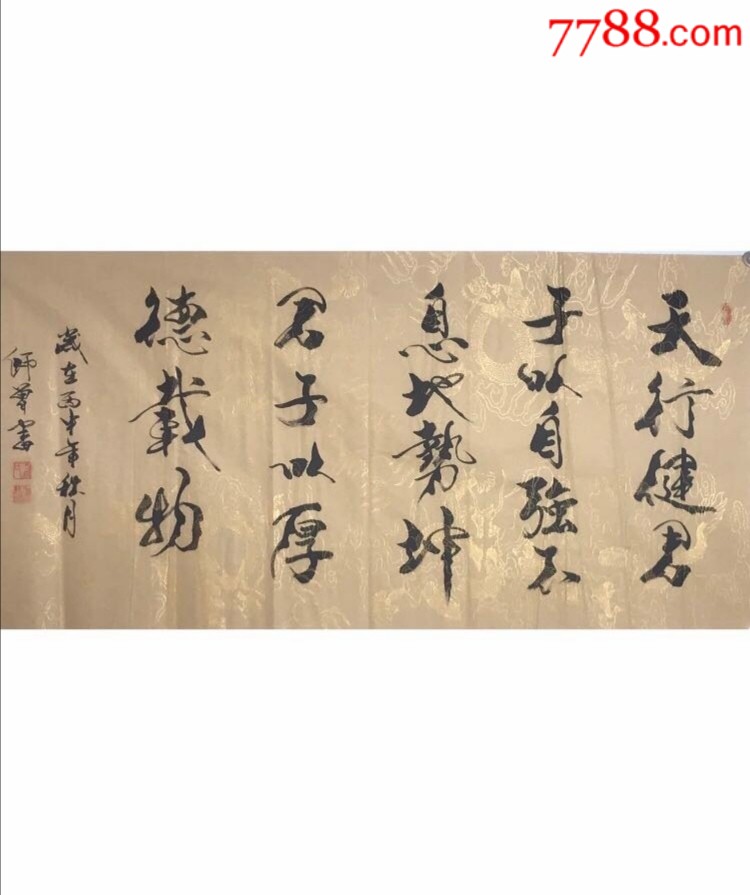 7788.com
天行健君
子以自強不
息地勢坤
君子以厚
德載物
歲在丙申年秋月
師尊書